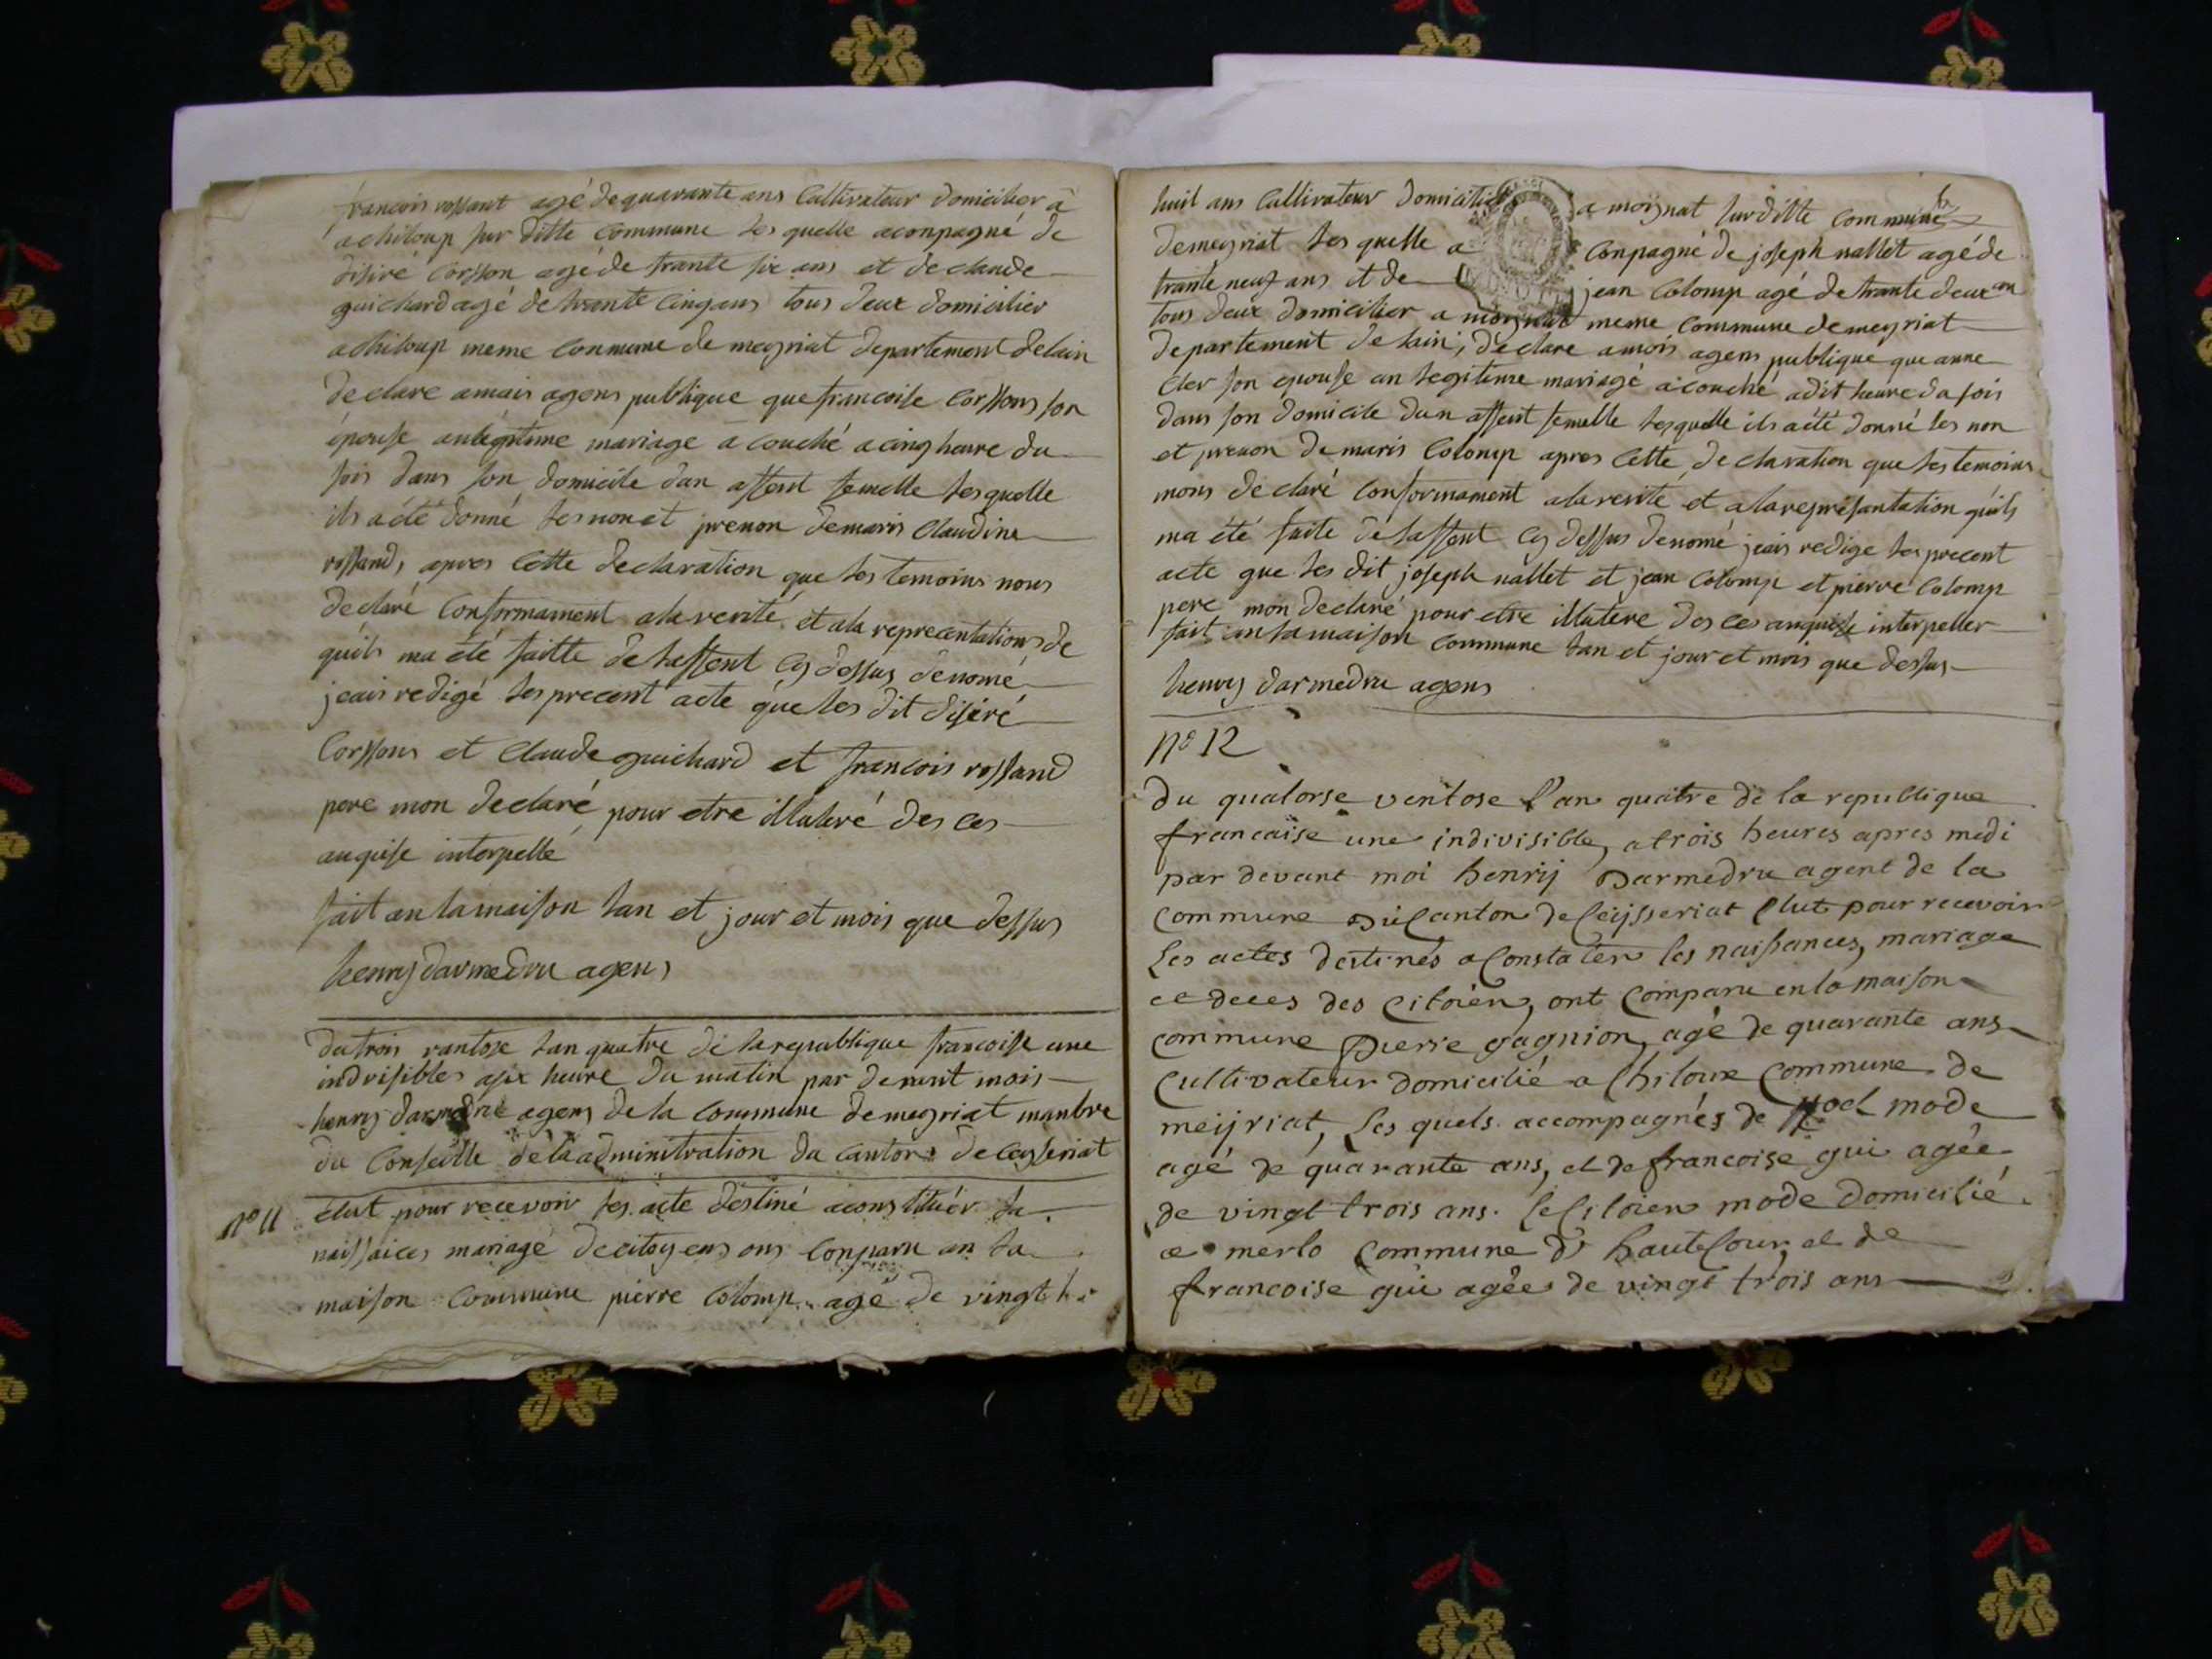 francois rossant agé de quarante ans Cultivateur domicilier a
achiloup sur ditte commune les quelle aconpagné de
disiré Corsson agé de trante six ans et de claude
guichard agé de trante cinq ans tous deux domicilier
achiloup meme commune de meyriat departement delain
declare amais agens publique que francoise Corssons son
épouse anlégitime mariage a couché a cinq heure du
sois dans son domicile dun assent femelle lesquelle
ils a été donné les non et prenon demaris Claudine
rossand, apres cette declaration que les temoins nous
declaré Conformament ala verité et ala reprecentations de
quils ma été faitte de lassent cy dessus denomé
jeais redigé les precent acte que les dit disiré
Corssons et Claude guichard et francois rossand
pere mon declaré pour etre illateré des ces
anquise interpellé
fait an lamaison lan et jour et mois que dessus
henry darmedru agens
du trois vantose lan quatre de la republique francoise une
indivisibles asix heure du matin par devent mois
henry darmedru agens de la commune demeyriat manbre
du Conseille de la adminitration du canton de ceyseriat
nº 11 élut pour recevoir les acte destiné aconstituér la
naissaices mariage decitoyens ons Conparu an la
maison commune pierre Colomp agé de vingt
huit ans Cultivateur domicilié a moignat sur ditte commune
demeyriat les quelle a conpagné de joseph nallet agé de
trante neuf ans et de jean Colomp agé de trante deux an
tous deux domicilier a moignat meme commune demeyriat
departement de lain, declare amois agens publique que anne
Cler son epouse an legitime mariagé acouché adit heure da sois
dans son domicile dun assent femelle lesquelle ils a été donné les non
et prenon de maris Colomp apres cette declaration que les temoins
mons declaré conformament ala verité et ala représantation quils
ma été faite de lassent cy dessus denomé jeais redige les precent
acte que les dit joseph nallet et jean Colomp et pierre Colomp
pere mon declaré pour etre illatere des ces anquise interpeller
fait an la maison commune lan et jour et mois que dessus
henry darmedru agens
nº 12
du quatorse ventose l'an quatre de la republique
francaise une indivisible, a trois heures apres midi
par devant moi henrij Darmedru agent de la
commune du canton de Ceijsseriat élut pour recevoir
Les actes destinés a Constater les naissances, mariage
et deces des Citoien, ont Comparu en la maison
commune Pierre gagnion, agé de quarante ans
Cultivateur domicilié a Chiloux Commune de
meijriat, Les quels accompagnés de Noel mode
agé de quarante ans, et de francoise gui agée
de vingt trois ans. Le Citoien mode domicilié
a merlo Commune d' hautecour, et de
francoise gui agée de vingt trois ans